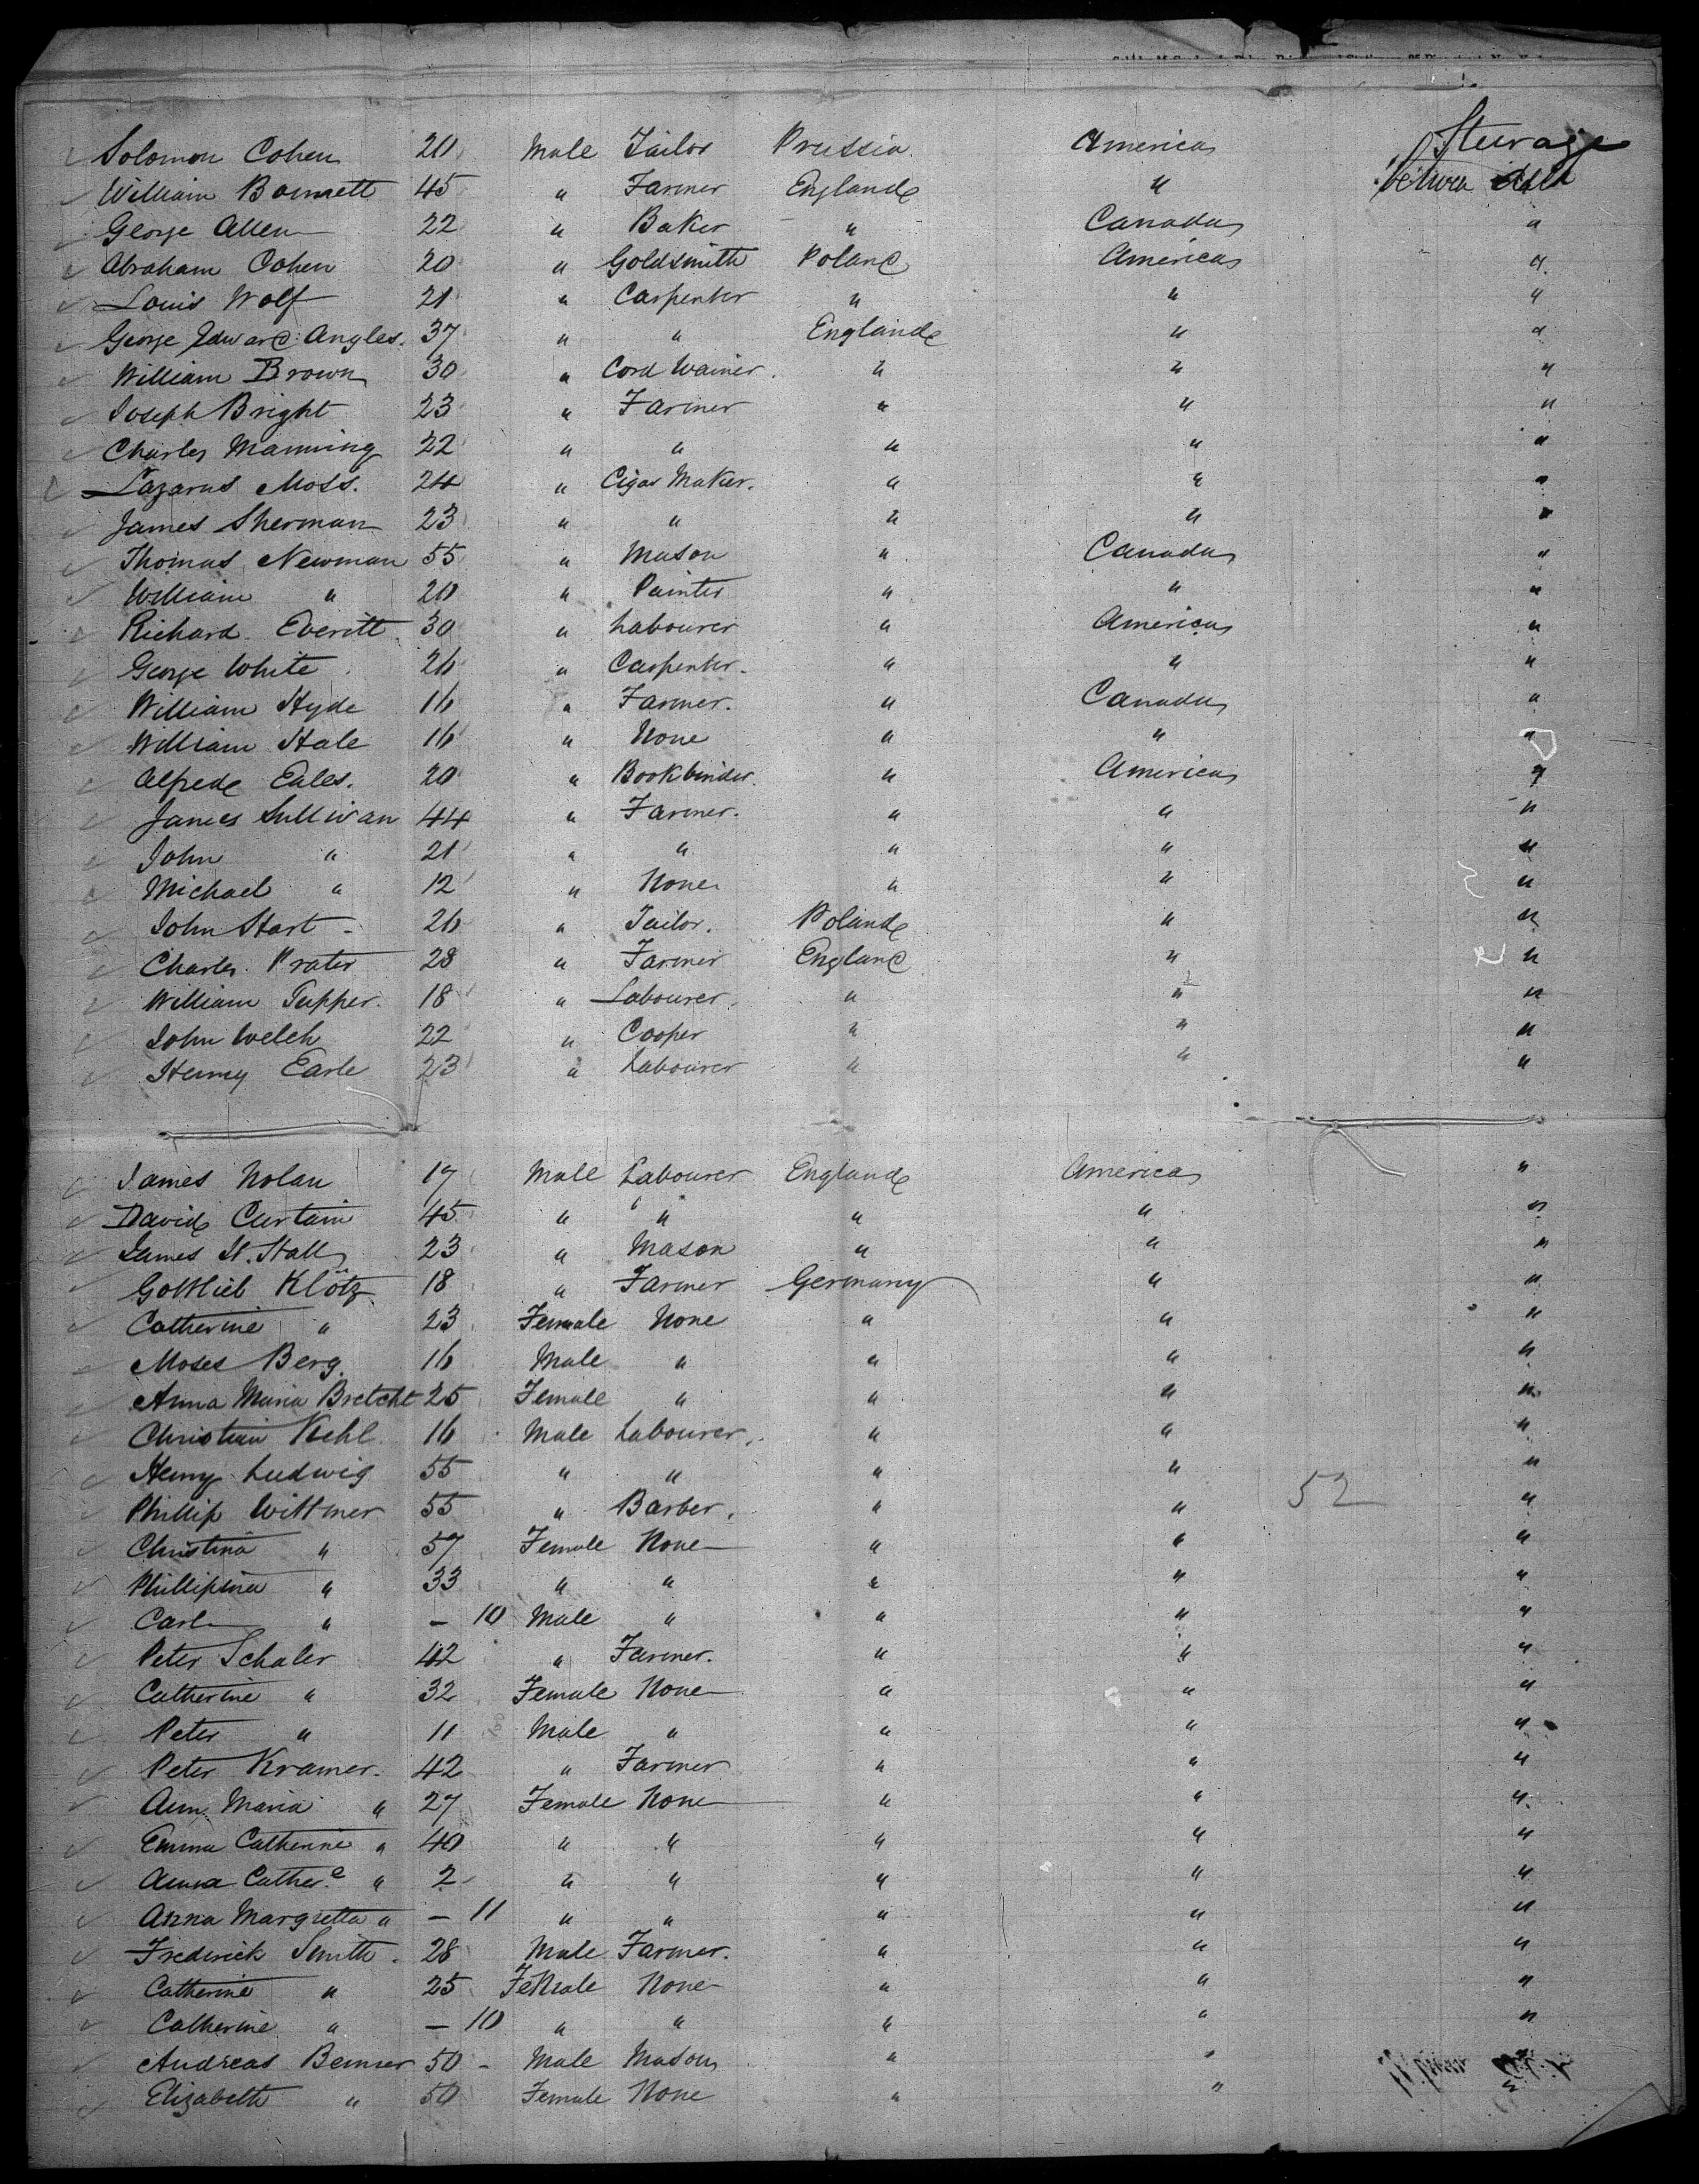 Steerage
Solomon Cohen 20 Male Tailor Prussia America
William Bonnett 45 " Farmer England " Between
George Allen 22 " Baker " Canada "
Abraham Cohen 20 " Goldsmith Poland America "
Louis Wolf 21 " Carpenter " " "
George Edward Angles. 37 " " England " "
William Brown 30 " Cord Wainer. " " "
Joseph Bright 23 " Farmer " " "
Charles Manning 22 " " " " "
Lazarus Moss. 24 " Cigar Maker. " " "
James Sherman 23 " " " " "
Thomas Newman 55 " Mason " Canada "
William " 20 " Painter " " "
Richard Everitt 30 " Labourer " America "
George White 26 " Carpenter. " " "
William Hyde 16 " Farmer. " Canada "
William Hale 16 " None " " "
Alfred Eales. 20 " Bookbinder " America "
James Sullivan 44 " Farmer. " " "
John " 21 " " " " "
Michael " 12 " None " " "
John Hart 26 " Tailor. Poland " "
Charles Prater 28 " Farmer England " "
William Tupper. 18 " Labourer. " " "
John Welch 22 " Cooper " " "
Henry Earle 23 " Labourer " " "
James Nolan 17 Male Labourer England America "
David Curtain 45 " " " " "
James H. Hall 23 " Mason " " "
Gottlieb Klötz 18 " Farmer Germany " "
Catherine " 23 Female None " " "
Moses Berg 16 Male " " " "
Anna Maria Bretcht 25 Female " " " "
Christian Kehl 16 Male Labourer. " " "
Henry Ludwig 55 " " " " "
52
Phillip Wittmer 55 " Barber. " " "
Christina " 57 Female None " " "
Phillipina " 33 " " " " "
Carl " – 10 Male " " " "
Peter Schaler 42 " Farmer. " " "
Catherine " 32 Female None " " "
Peter " 11 Male " " " "
Peter Kramer. 42 " Farmer " " "
Ann Maria " 27 Female None " " "
Emma Catherine " 40 " " " " "
Anna Cather.e " 2 " " " " "
Anna Margretta " – 11 " " " " "
Frederick Smith. 28 Male Farmer. " " "
Catherine " 25 Female None " " "
Catherine " – 10 " " " " "
Andreas Benner 50 Male Mason " "
Elizabeth " 50 Female None " "